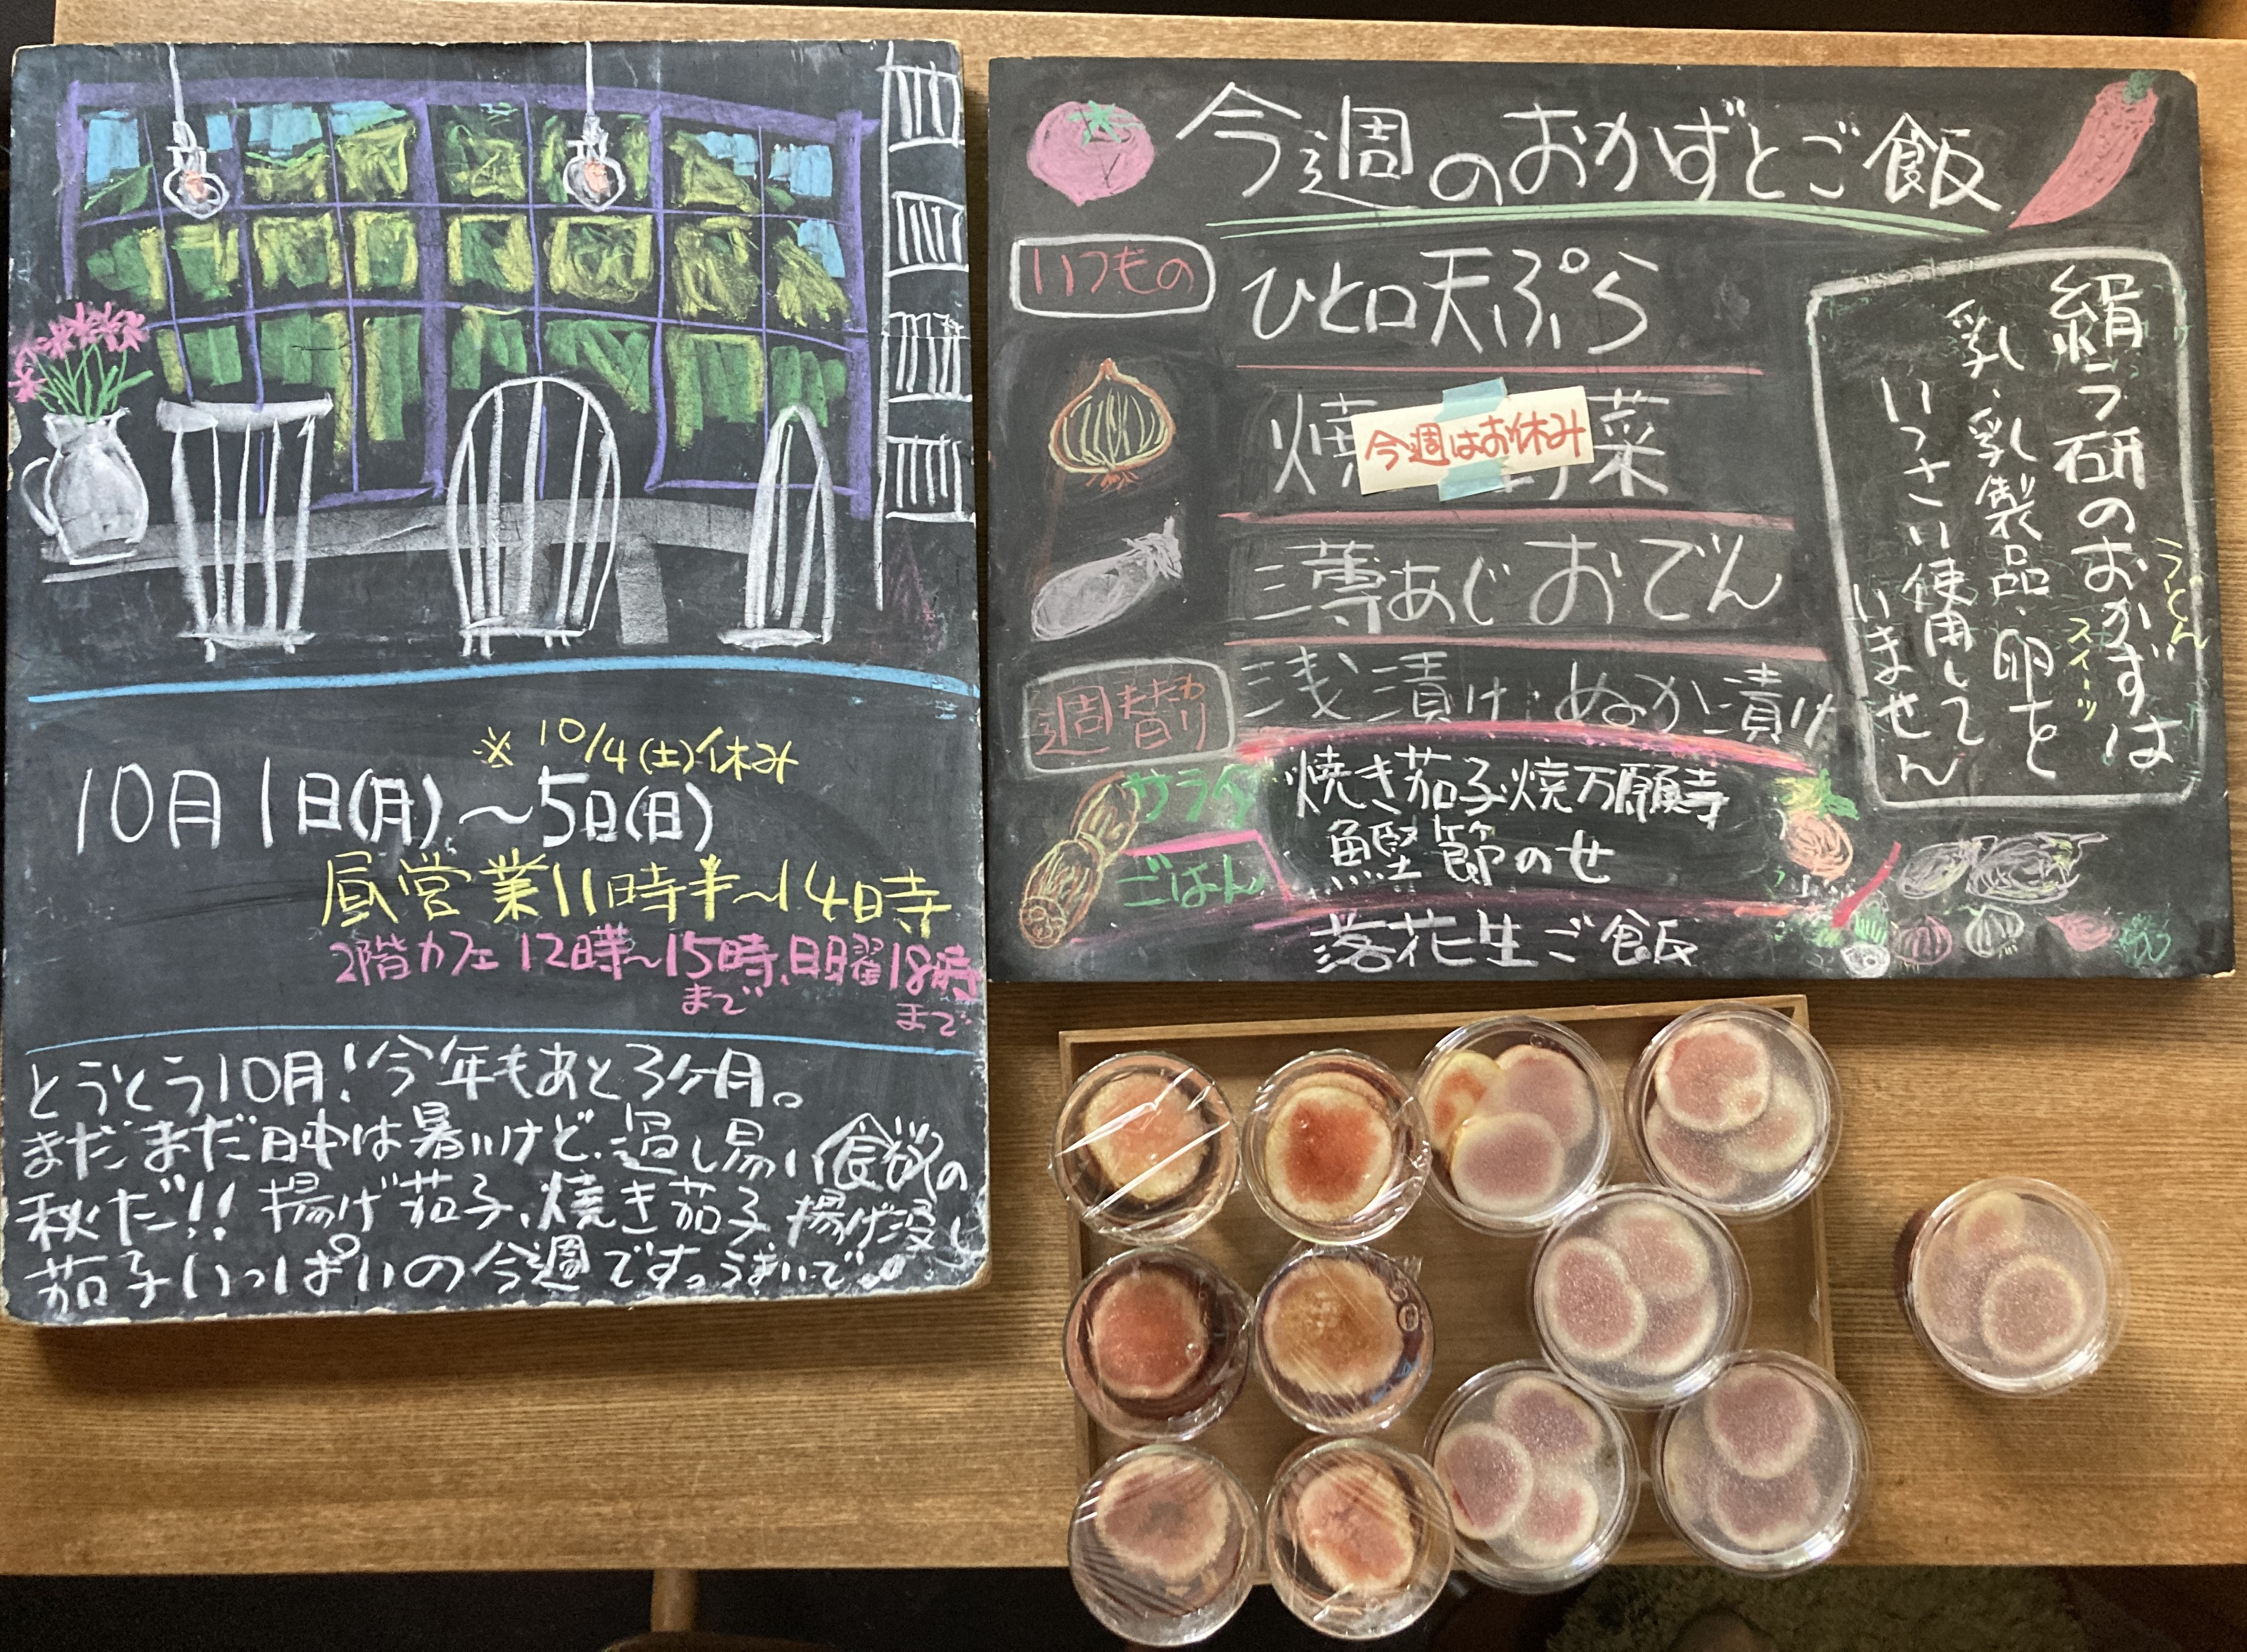 ※10/4(土)休み
10月1日(月)～5日(日)
昼営業11時半～14時
2階カフェ 12時～15時、日曜18時
まで まで
とうとう10月!今年もあと3ヶ月。
まだまだ日中は暑いけど、過し易い食欲の
秋だ!! 揚げ茄子、焼き茄子、揚げ浸し
茄子いっぱいの今週です。
今週のおかずとご飯
いつもの
ひと口天ぷら
焼 菜
今週はお休み
薄あじおでん
浅漬け・ぬか漬け
週替り
かわ
サラダ
焼き茄子焼万願寺
鰹節のせ
ごはん
落花生ご飯
絹ラ研のおかずは
うどん
スイーツ
乳・乳製品・卵を
いっさい使用して
いません